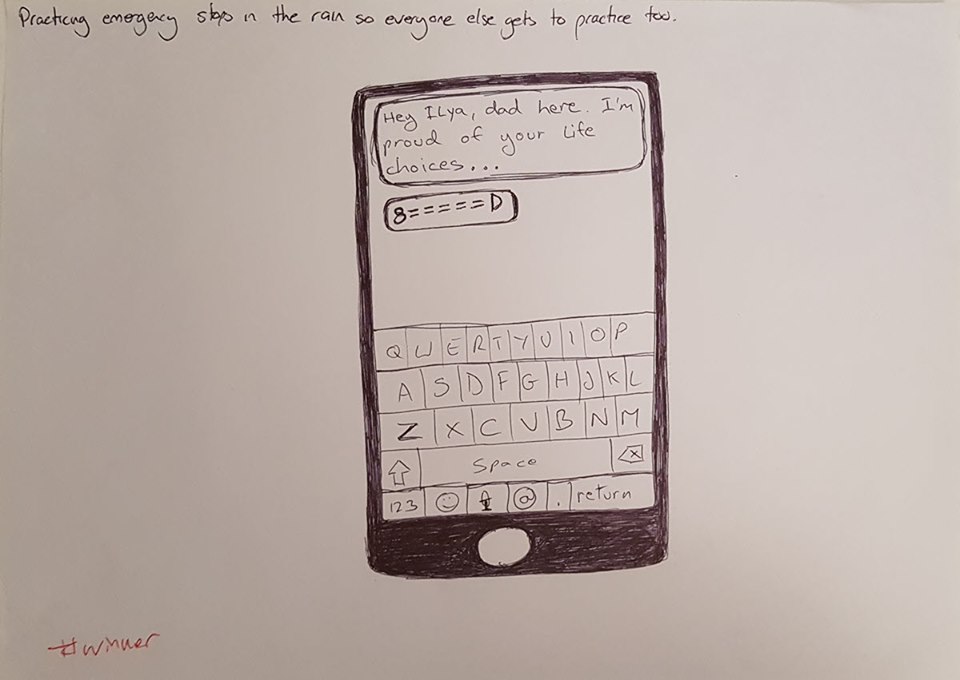 Practicing emergency stops in the rain so everyone else gets to practice too.
Hey ILya, dad here. I'm
proud of your Life
choices...
8=====D
Q W E R T Y U I O P
A S D F G H J K L
Z X C V B N M
Space
123 @ . return
#winner